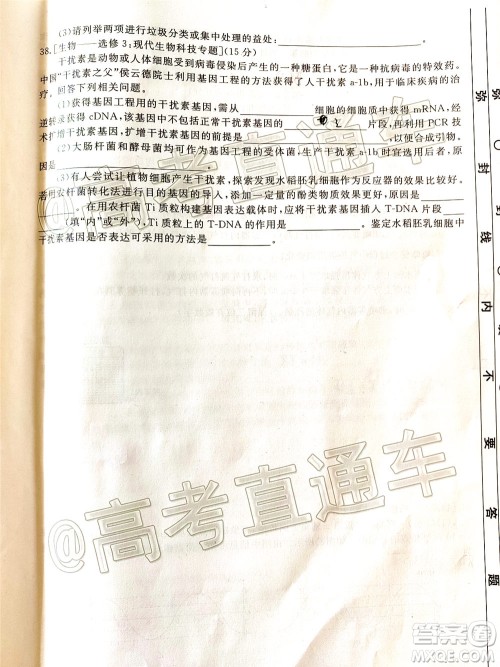 (3)请列举两项进行垃圾分类或集中处理的益处:
38.[生物——选修3:现代生物科技专题](15分)
干扰素是动物或人体细胞受到病毒侵染后产生的一种糖蛋白,它是一种抗病毒的特效药。
中国“干扰素之父”侯云德院士利用基因工程的方法获得了人干扰素 a-1b,用于临床疾病的治
疗。回答下列相关问题。
(1)获得基因工程用的干扰素,需从 细胞的细胞质中获得 mRNA,经
逆转录获得 cDNA,该基因中不包括正常干 片段,再利用 PCR 技
术扩增干扰素基因,扩增干扰素基因的前提是 ,以便合成引物。
(2)大肠杆菌和酵母菌均可作为基因工程的受体菌,生产干扰素 a-1b 时宜选用后者,原
因是
(3)有人尝试让植物细胞产生干扰素,发现用水稻胚乳细胞作为反应器的效果比较好。
若用农杆菌转化法进行目的基因的导入,需添加某种酚类化合物质效果更好,原因是
。在用农杆菌 Ti 质粒构建基因表达载体时,应将干扰素基因插入 T-DNA 片段
(填“内”或“外”),Ti 质粒上的 T-DNA 的作用是 。鉴定水稻胚乳细胞中
干扰素基因是否表达可采用的方法是 。
弥
封
线
不
要
答
题
@高考直通车
@高考直通车
答案圈
MXQE.COM